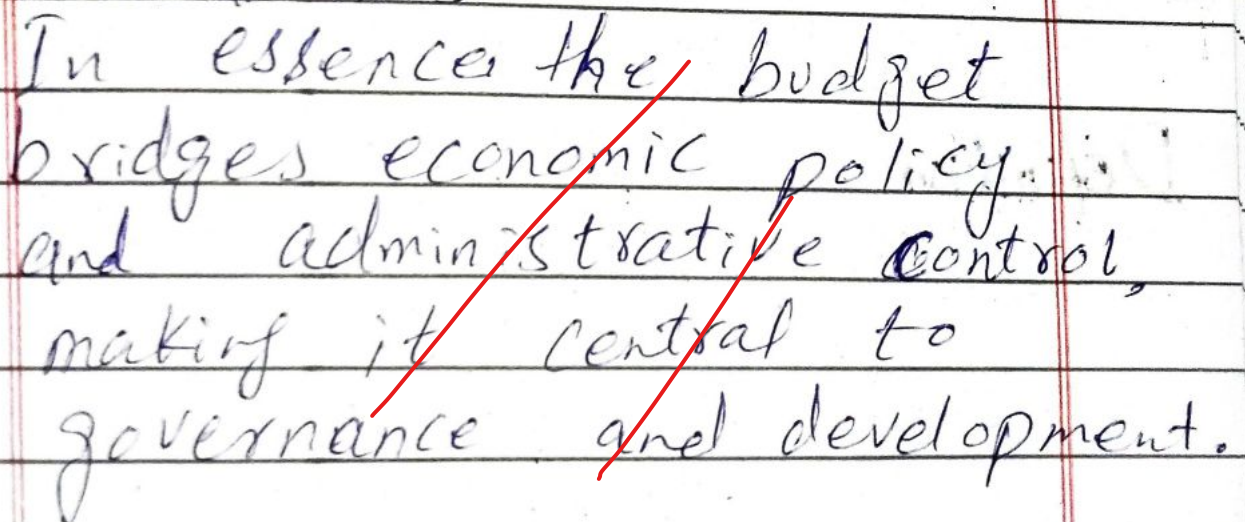 In essence the budget
bridges economic policy
and administrative control,
making it central to
governance and development.